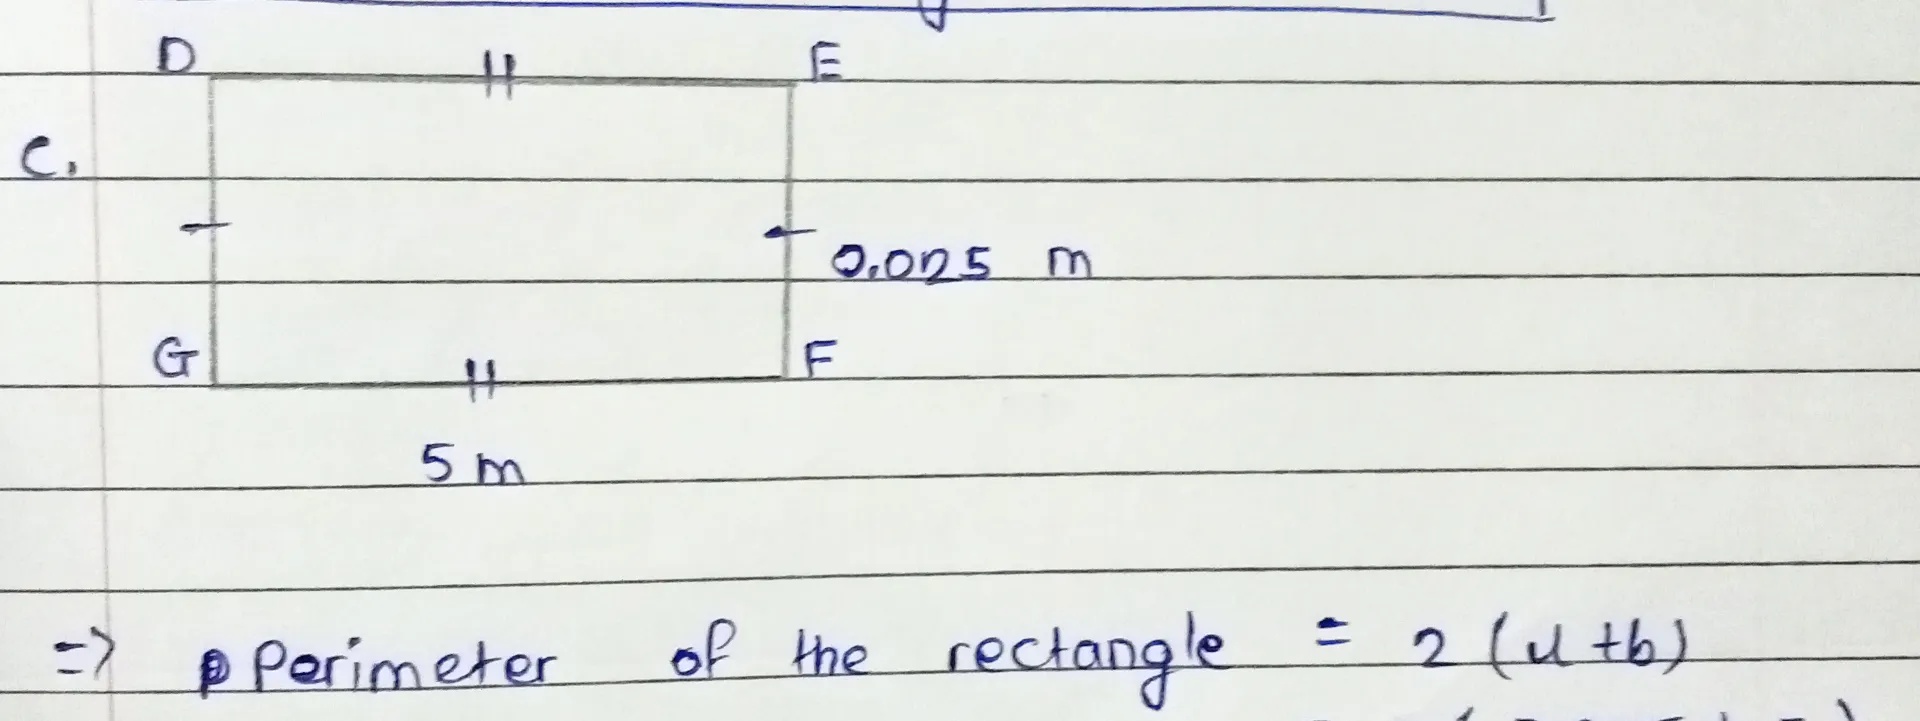 D E
C.
0.025 m
G F
5 m
=> Perimeter of the rectangle = 2 (l + b)